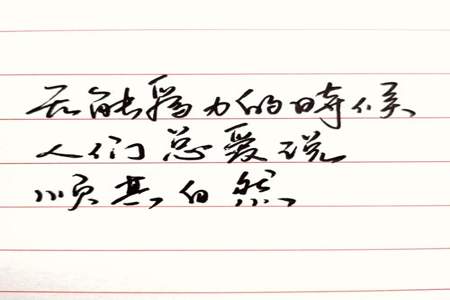 无能為力的時候
人们总爱说
顺其自然